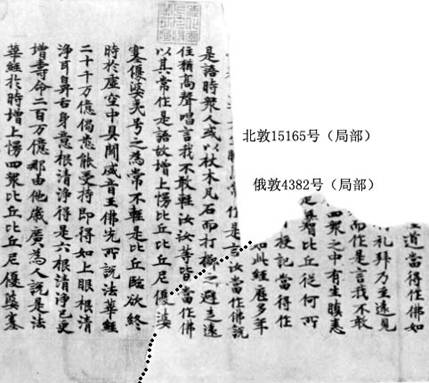 北敦15165号（局部）
俄敦4382号（局部）
道當得作佛如
礼拜乃至遠見
而作是言我不敢
四衆之中有生瞋恚
是无智比丘從何所
授記當得作
如此經歷多年
作是言汝當作佛說
是語時衆人或以杖木瓦石而打擲之避走遠
住猶高聲唱言我不敢輕汝汝等皆當作佛
以其常作是語故增上慢比丘比丘尼優婆
塞優婆夷号之為常不輕是比丘臨欲終
時於虛空中具聞威音王佛先所說法華經
二十千万億偈悉能受持即得如上眼根清
淨耳鼻舌身意根清淨得是六根清淨已更
增壽命二百万億那由他歲廣為人說是法
華經於時增上慢四衆比丘比丘尼優婆塞